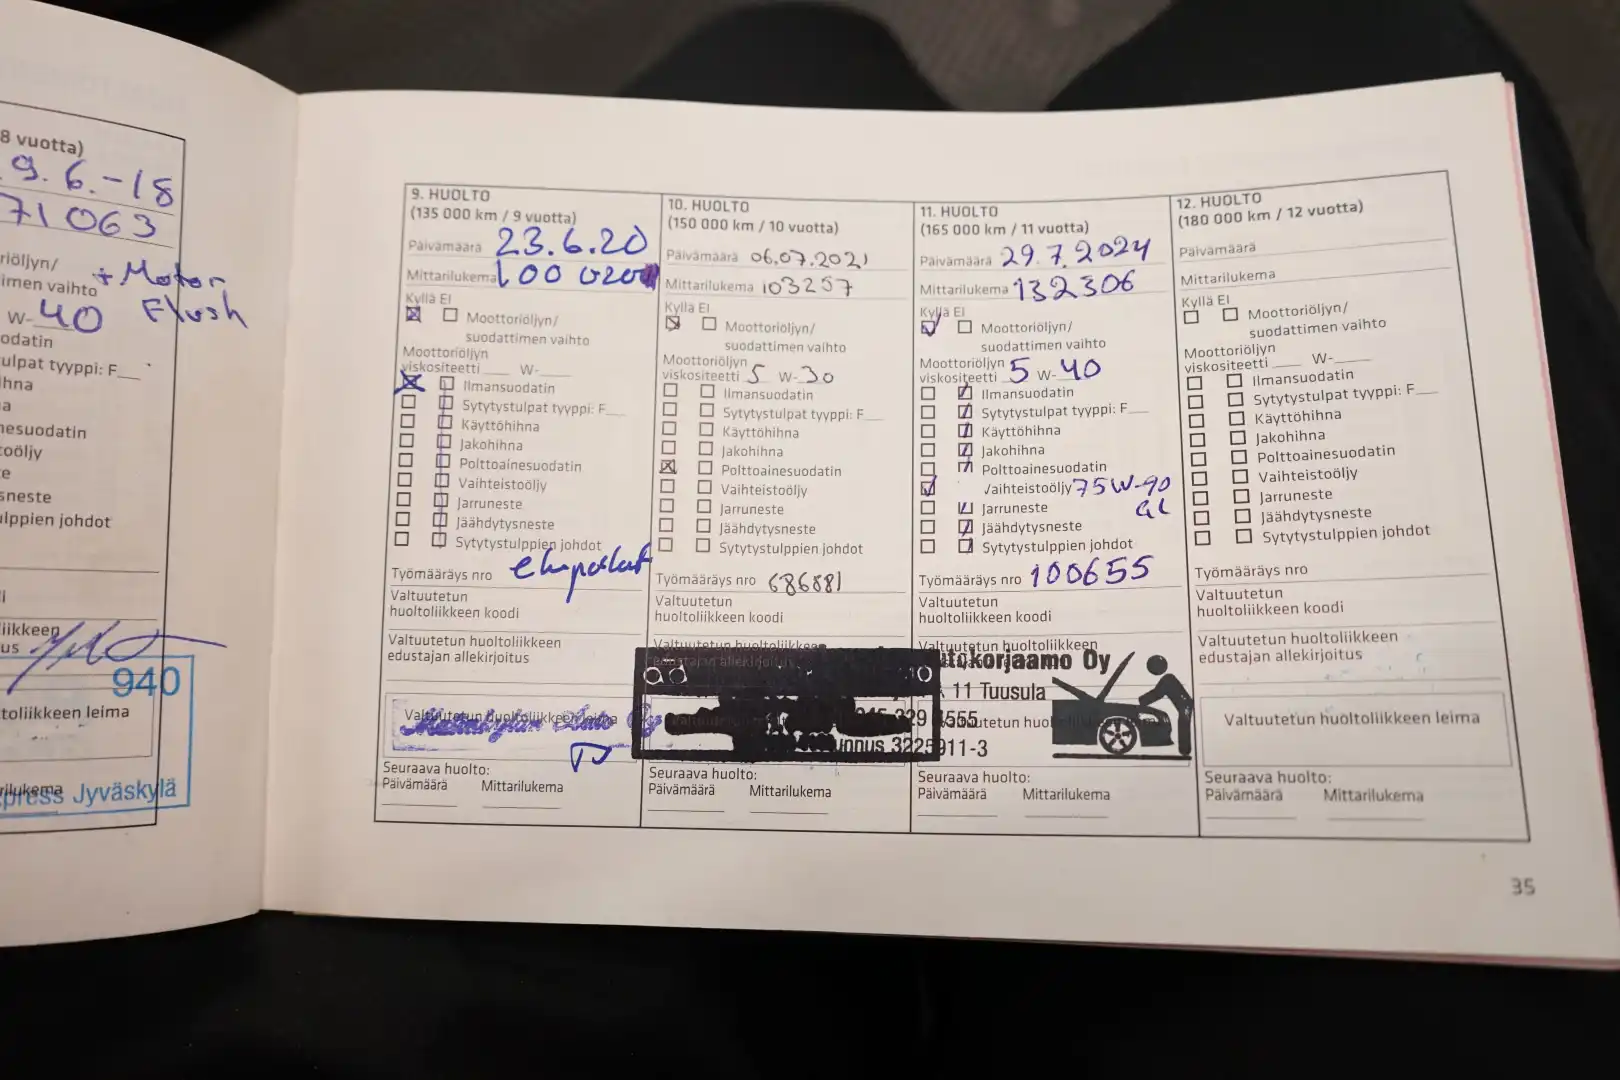 8 vuotta)
9.6.-18
71063
riöljyn/
imen vaihto + Motor
Flush
W-40
odatin
ulpat tyyppi: F__
ihna
a
nesuodatin
toöljy
e
sneste
ulppien johdot
i
iikkeen
us
940
toliikkeen leima
rilukema
press Jyväskylä
9. HUOLTO
(135 000 km / 9 vuotta)
Päivämäärä 23.6.20
Mittarilukema
Kyllä EI
Moottoriöljyn/
suodattimen vaihto
Moottoriöljyn
viskositeetti ___ W-___
Ilmansuodatin
Sytytystulpat tyyppi: F__
Käyttöhihna
Jakohihna
Polttoainesuodatin
Vaihteistoöljy
Jarruneste
Jäähdytysneste
Sytytystulppien johdot
Työmääräys nro
Valtuutetun
huoltoliikkeen koodi
Valtuutetun huoltoliikkeen
edustajan allekirjoitus
Valtuutetun huoltoliikkeen leima
Seuraava huolto:
Päivämäärä Mittarilukema
10. HUOLTO
(150 000 km / 10 vuotta)
Päivämäärä 06.07.2021
Mittarilukema 103257
Kyllä EI
Moottoriöljyn/
suodattimen vaihto
Moottoriöljyn
viskositeetti 5 W-30
Ilmansuodatin
Sytytystulpat tyyppi: F__
Käyttöhihna
Jakohihna
Polttoainesuodatin
Vaihteistoöljy
Jarruneste
Jäähdytysneste
Sytytystulppien johdot
Työmääräys nro 686881
Valtuutetun
huoltoliikkeen koodi
Valtuutetun huoltoliikkeen
edustajan allekirjoitus
Seuraava huolto:
Päivämäärä Mittarilukema
11. HUOLTO
(165 000 km / 11 vuotta)
Päivämäärä 29.7.2024
Mittarilukema 132306
Kyllä EI
Moottoriöljyn/
suodattimen vaihto
Moottoriöljyn
viskositeetti 5 W-40
Ilmansuodatin
Sytytystulpat tyyppi: F__
Käyttöhihna
Jakohihna
Polttoainesuodatin
Vaihteistoöljy 75W-90
GL
Jarruneste
Jäähdytysneste
Sytytystulppien johdot
Työmääräys nro 100655
Valtuutetun
huoltoliikkeen koodi
Valtuutetun huoltoliikkeen
utokorjaamo Oy
11 Tuusula
4555
3225911-3
Seuraava huolto:
Päivämäärä Mittarilukema
12. HUOLTO
(180 000 km / 12 vuotta)
Päivämäärä
Mittarilukema
Kyllä EI
Moottoriöljyn/
suodattimen vaihto
Moottoriöljyn
viskositeetti ___ W-___
Ilmansuodatin
Sytytystulpat tyyppi: F__
Käyttöhihna
Jakohihna
Polttoainesuodatin
Vaihteistoöljy
Jarruneste
Jäähdytysneste
Sytytystulppien johdot
Työmääräys nro
Valtuutetun
huoltoliikkeen koodi
Valtuutetun huoltoliikkeen
edustajan allekirjoitus
Valtuutetun huoltoliikkeen leima
Seuraava huolto:
Päivämäärä Mittarilukema
35